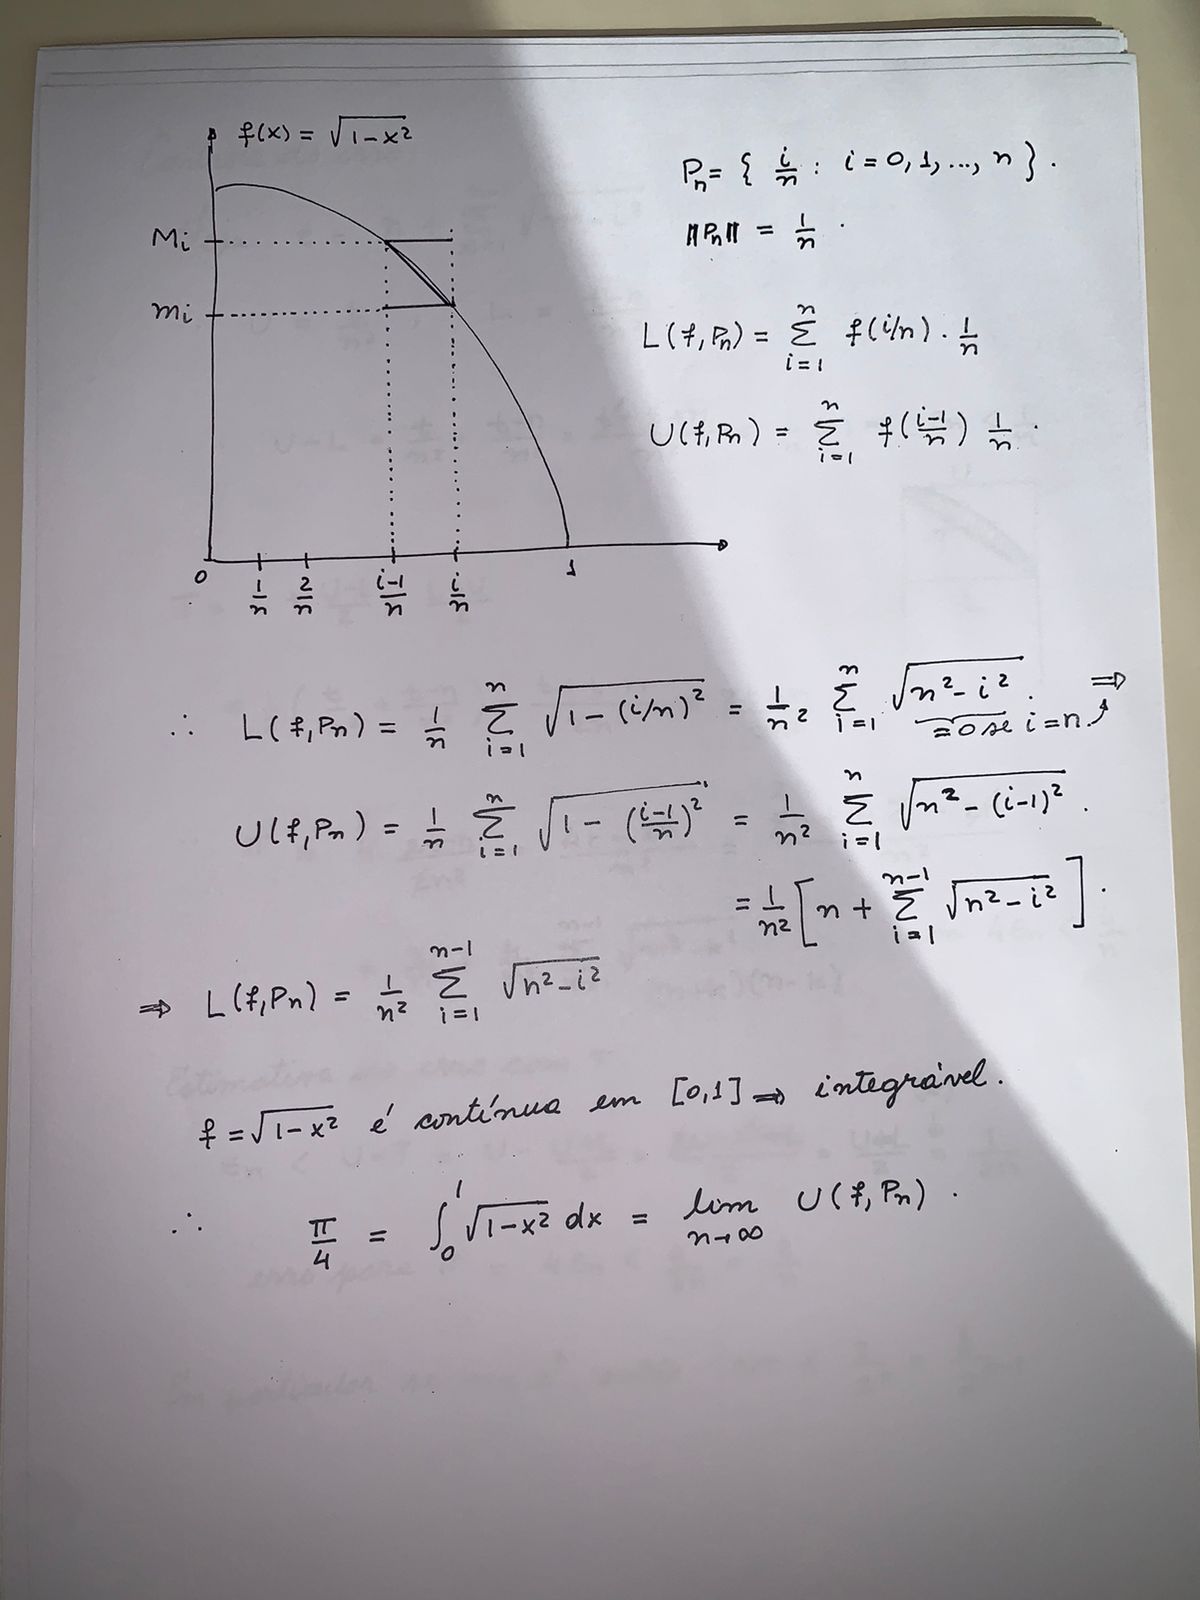 f(x) = √(1-x²)
Pₙ = { i/n : i = 0, 1, ..., n } .
Mi
‖Pₙ‖ = 1/n .
mi
L(f, Pₙ) = Σ_{i=1}^{n} f(i/n) . 1/n
U(f, Pₙ) = Σ_{i=1}^{n} f((i-1)/n) 1/n .
0 1/n 2/n (i-1)/n i/n 1
∴ L(f, Pₙ) = 1/n Σ_{i=1}^{n} √(1 - (i/n)²) = 1/n² Σ_{i=1}^{n} √(n² - i²) . ⇒
= 0 se i = n
U(f, Pₙ) = 1/n Σ_{i=1}^{n} √(1 - ((i-1)/n)²) = 1/n² Σ_{i=1}^{n} √(n² - (i-1)²) .
= 1/n² [ n + Σ_{i=1}^{n-1} √(n² - i²) ] .
⇒ L(f, Pₙ) = 1/n² Σ_{i=1}^{n-1} √(n² - i²)
f = √(1-x²) é contínua em [0,1] ⇒ integrável.
∴ π/4 = ∫₀¹ √(1-x²) dx = lim_{n→∞} U(f, Pₙ) .